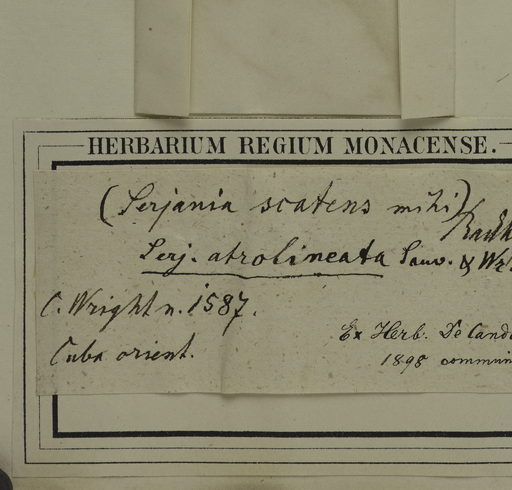 HERBARIUM REGIUM MONACENSE.
(Serjania scatens mihi)
Serj. atrolineata Sauv. & Wr.
C. Wright n. 1587.
Cuba orient.
Ex Herb. De Cando
1898 commun